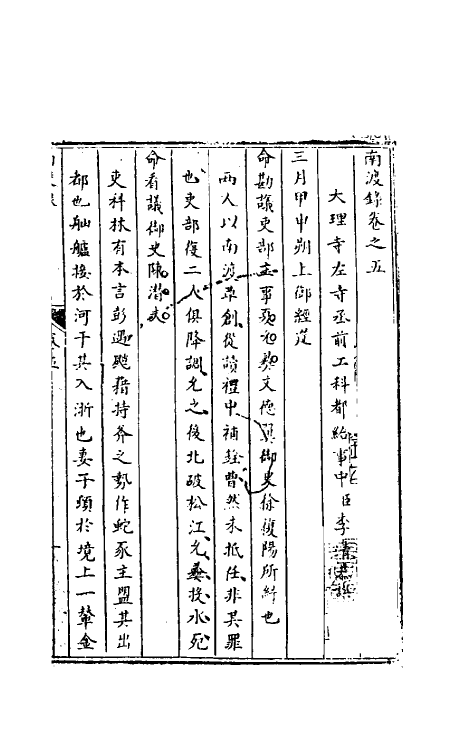 南渡錄卷之五
大理寺左寺丞前工科都給事中臣李清
三月甲申朔上御經筵
命勘議吏部主事夏允彝文德翼御史徐復陽所糾也
兩人以南渡草創從讀禮中補銓曹然未抵任非其罪
也吏部復二人俱降調允之後北破松江允彝投水死
命看議御史陳潛夫
吏科林有本言彭遇颽藉持斧之勢作蛇豕主盟其出
都也舳艫接於河干其入浙也妻子頌於境上一輦金